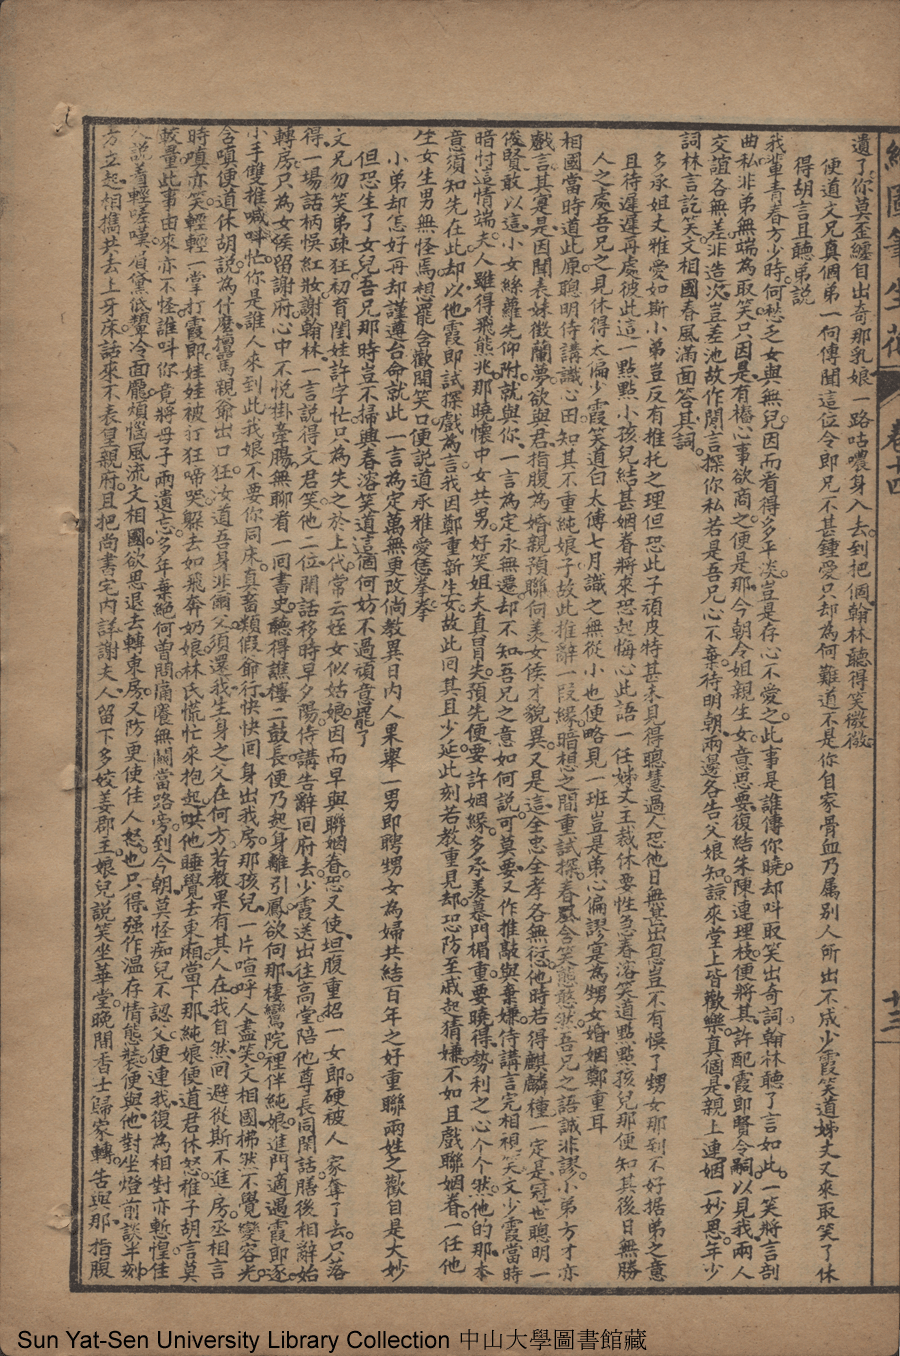 繪圖筆生花 卷十四 十三
遺了你莫歪纏自出奇那乳娘一路咕噥身入去到把個翰林聽得笑微微
便道文兄真個弟一向傳聞這位令郎兄不甚鍾愛只却為何難道不是你自家骨血乃属別人所出不成少霞笑道姊丈又來取笑了休
得胡言且聽弟說
我輩青春方少時何愁之女與無兒因而看得多平淡豈是存心不愛之此事是誰傳你曉却呌取笑出奇詞翰林聽了言如此一笑將言剖
曲私非弟無端為取笑只因是有樁心事欲商之便是那今朝令姐親生女意思要復結朱陳連理枝便將其許配霞郎賢令嗣以見我兩人
交誼各無差非造次豈差池故作閒言探你私若是吾兄心不棄待明朝兩邊各告父娘知諒來堂上皆歡樂真個是親上連姻一妙思年少
詞林言訖笑文相國春風滿面答其詞
多承姐丈雅愛如斯小弟豈反有推托之理但恐此子頑皮特甚未見得聰慧過人恐他日無甚出息豈不有悞了甥女那到不好据弟之意
且待遲遲再處彼此這一點點小孩兒結甚姻眷將來恐起悔心此語一任姊丈主裁休要性急春溶笑道點點孩兒那便知其後日無勝
人之處吾兄之見休得太偏少霞笑道曰太傅七月識之無從小也便略見一班豈是弟心偏謬寔為甥女婚姻鄭重耳
相國當時道此原聰明侍講識心田知其不重純娘子故此推辭一段緣暗想之間重試探春風含笑態憨然吾兄之語誠非謬小弟方才亦
戲言其寔是因聞表妹徵蘭夢欲與君指腹為婚親預聯何羨女侯才貌異又是這全忠全孝各無愆他時若得麒麟種一定是冠世聰明一
俊賢敢以這小女絲蘿先仰附就與你一言為定永無遷却不知吾兄之意如何說可莫要又作推敲與棄嫌侍講言完相視笑文少霞當時
暗忖這情端夫人雖得飛熊兆那曉懷中女共男好笑姐夫真冒失預先便要許姻緣多承羨慕門楣重要曉得勢利之心个个然他的那本
意須知先在此却以他霞郎試探戲為言我因鄭重新生女故此回其且少延此刻若教重見却恐防至戚起猜嫌不如且戲聯姻眷一任他
生女生男無怪焉想罷含歡開笑口便說道承雅愛恁拳拳
小弟却怎好再却謹遵台命就此一言為定萬無更改倘教異日內人果舉一男即聘甥女為婦共結百年之好重聯兩姓之歡自是大妙
但恐生了女兒吾兄那時豈不掃興春溶笑道這個何妨不過頑意罷了
文兄勿笑弟疎狂初育閨娃許字忙只為失之於上代常云姪女似姑娘因而早與聯姻眷恐又使坦腹重招一女郎硬被人家奪了去只落
得一場話柄悞紅妝謝翰林一言說得文君笑他二位閒話移時早夕陽侍講告辭回府去少霞送出往高堂陪他尊長同閒話膳後相辭始
轉房只為女侯留謝府心中不悦掛牽腸無聊者一回書史聽得譙樓二鼓長便乃起身離引鳳欲向那棲鸞院裡伴純娘進門適遇霞郎逐
小手雙推喊呌忙你是誰人來到此我娘不要你同床真畜類假爺行快快回身出我房那孩兒一片喧呼人盡笑文相國拂然不覺變容光
含嗔便道休胡說為什麽擅罵親爺出口狂汝道吾身非爾父須還我生身之父在何方若教果有其人在我自然回避從斯不進房丞相言
時嗔亦笑輕輕一掌打霞郎娃娃被打狂啼哭躲去如飛奔奶娘林氏慌忙來抱起哄他睡覺去東廂當下那純娘便道君休怒稚子胡言莫
較量此事由來亦不怪誰呌你竟將母子兩遺忘多年棄絕何曾問痛癢無關當路旁到今朝莫怪痴兒不認父便連我復為相對亦慙惶佳
人說着輕嗟嘆眉黛低顰冷面龐煩惱風流文相國欲思退去轉東房又防更使佳人怒也只得强作溫存情態裝便與他對坐燈前談半刻
方立起相攜共去上牙床話來不表皇親府且把尚書宅內詳謝夫人留下多姣姜郡主娘兒說笑坐華堂晚間香士歸家轉告與那指腹
Sun Yat-Sen University Library Collection 中山大學圖書館藏